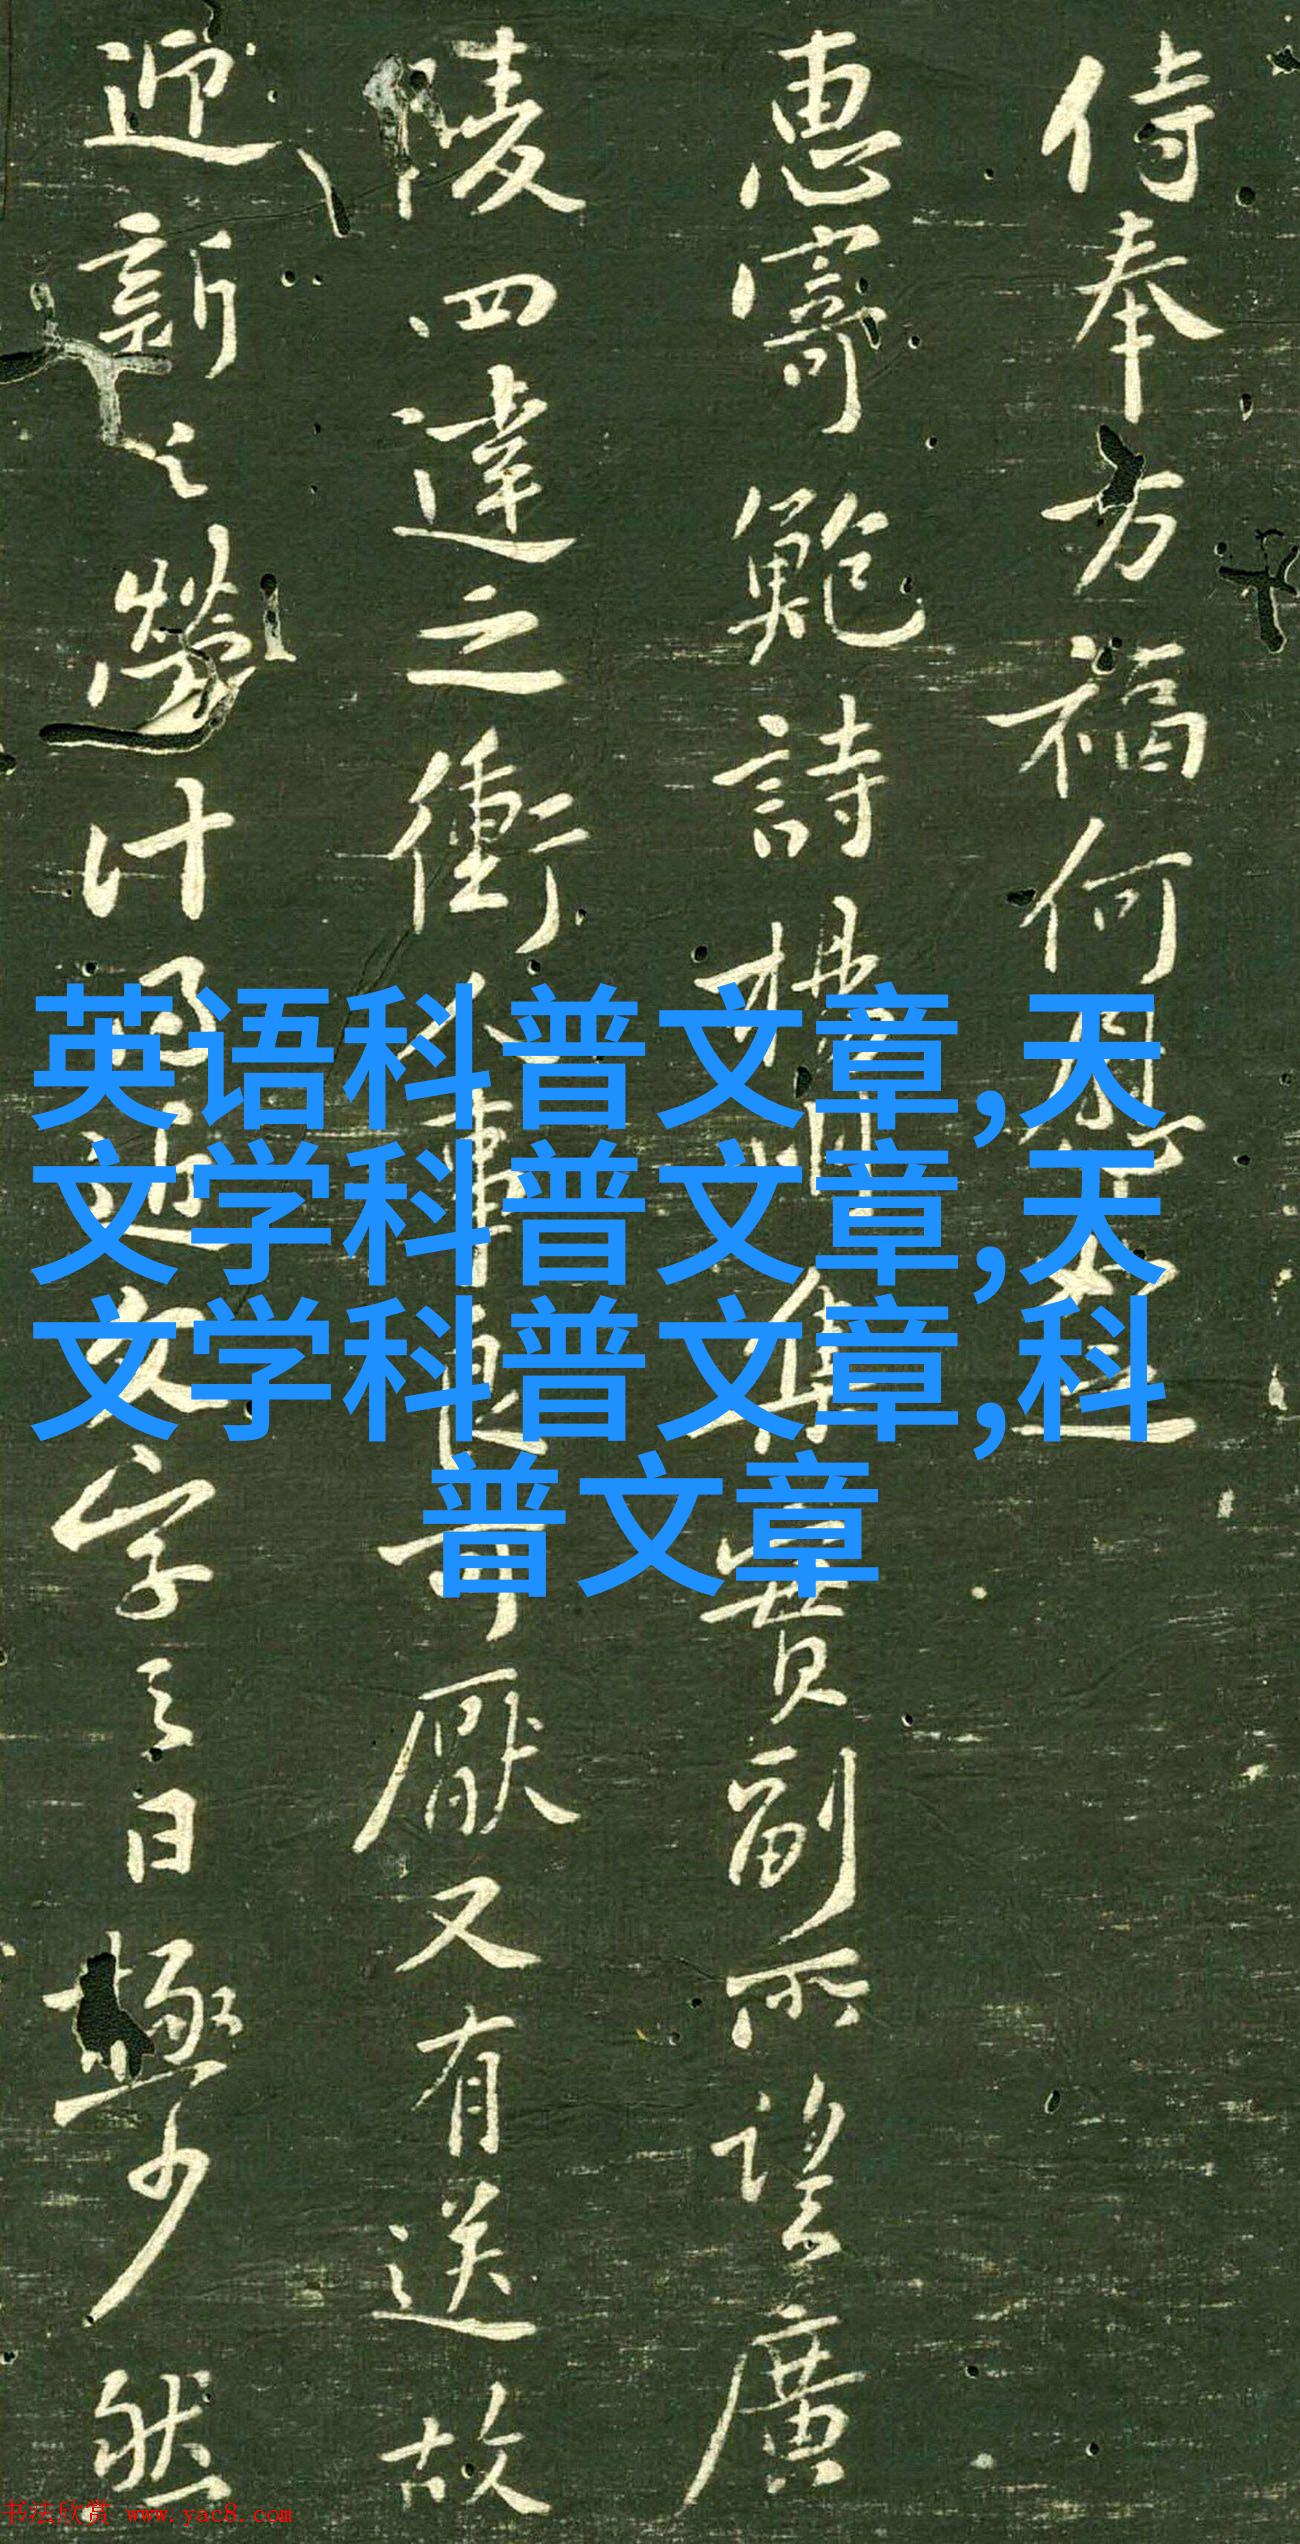 侍奉万福何
惠寄鲍詩
費副所望廣
陵四達之衝
可厭又有送故
迎新之勞計
文字之日極少然
英语科普文章,天
文学科普文章,天
文学科普文章,科
普文章
书法欣赏 www.yac8.com